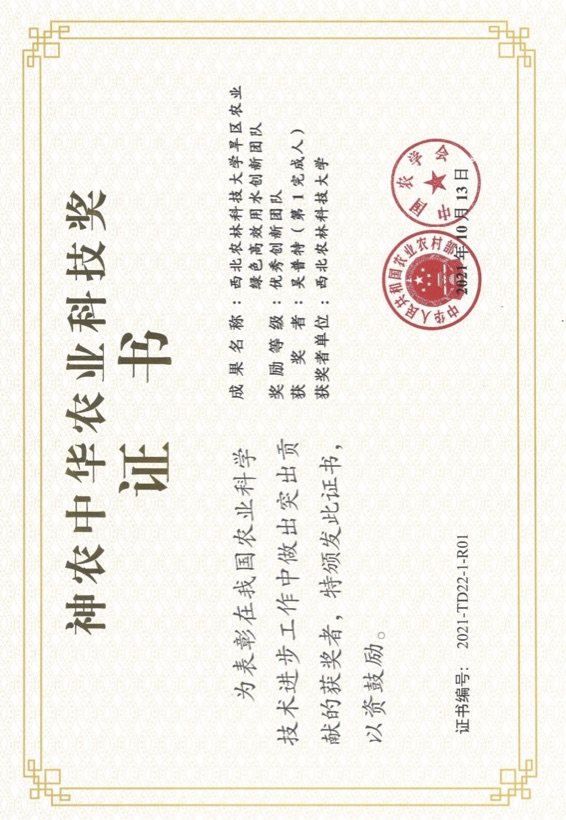 神农中华农业科技奖
证 书
为表彰在我国农业科学
技术进步工作中做出突出贡
献的获奖者，特颁发此证书，
以资鼓励。
成果名称：西北农林科技大学旱区农业
绿色高效用水创新团队
奖励等级：优秀创新团队
获 奖 者：吴普特（第1完成人）
获奖者单位：西北农林科技大学
证书编号： 2021-TD22-1-R01
中华人民共和国农业农村部
中国农学会
2021年10月13日